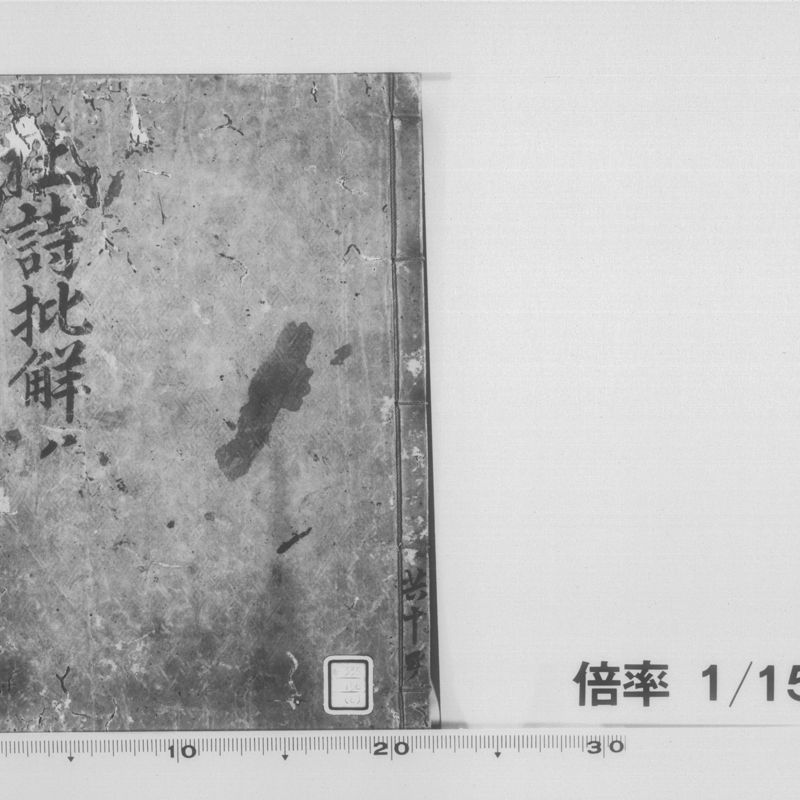 杜詩批解 八
共十
倍率 1/15
10 20 30